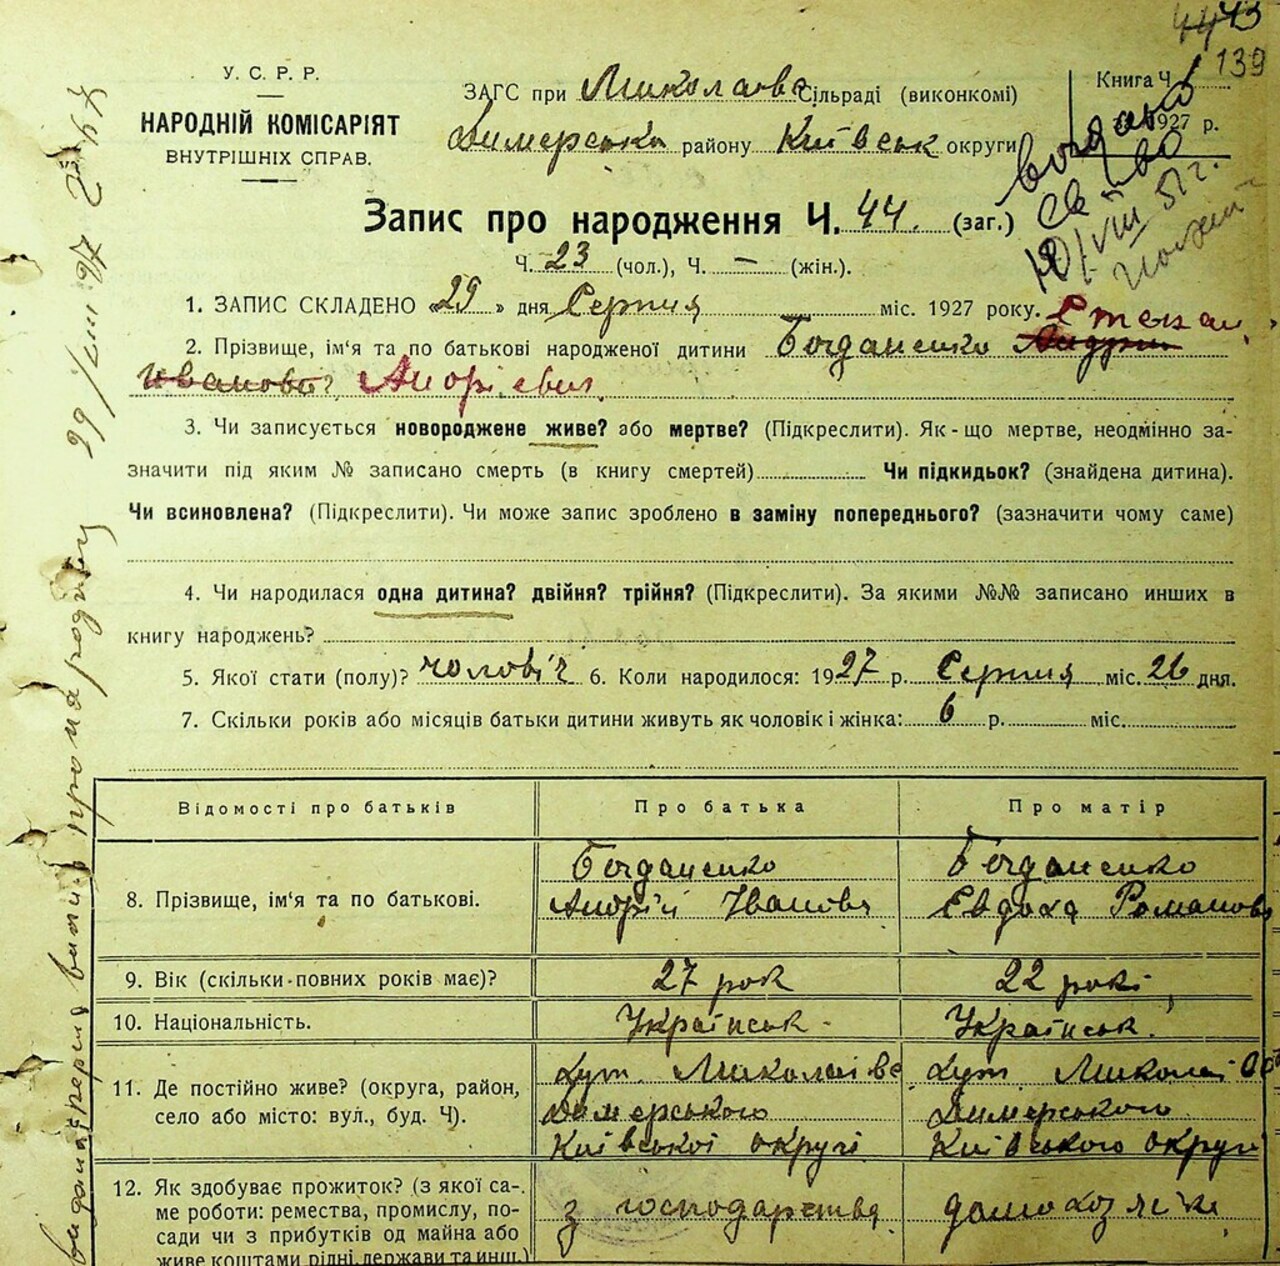 4443
139
У. С. Р. Р.
НАРОДНІЙ КОМІСАРІЯТ
ВНУТРІШНІХ СПРАВ.
ЗАГС при Миколаівс Сільраді (виконкомі)
Димерська району Київськ округи
Книга Ч.
1927 р.
Запис про народження Ч. 44. (заг.)
Ч. 23 (чол.), Ч. — (жін.).
1. ЗАПИС СКЛАДЕНО «29» дня Серпня міс. 1927 року.
2. Прізвище, ім'я та по батькові народженої дитини Богданенко Андрій Степан
Іванович Андрієвич
3. Чи записується новороджене живе? або мертве? (Підкреслити). Як-що мертве, неодмінно за-
значити під яким № записано смерть (в книгу смертей) Чи підкидьок? (знайдена дитина).
Чи всиновлена? (Підкреслити). Чи може запис зроблено в заміну попереднього? (зазначити чому саме)
4. Чи народилася одна дитина? двійня? трійня? (Підкреслити). За якими №№ записано инших в
книгу народжень?
5. Якої стати (полу)? чоловіч 6. Коли народилося: 1927 р. Серпня міс. 26 дня.
7. Скільки років або місяців батьки дитини живуть як чоловік і жінка: 6 р. міс.
Відомості про батьків
Про батька
Про матір
8. Прізвище, ім'я та по батькові.
Богданенко
Андрій Іванов
Богданенко
Евдоха Романов
9. Вік (скільки повних років має)?
27 рок
22 рокі
10. Національність.
Українськ
Українськ.
11. Де постійно живе? (округа, район,
село або місто: вул., буд. Ч).
Хут. Миколаівс
Димерського
Київської округі
Хут. Миколаівс
Димерського
Київського округі
12. Як здобуває прожиток? (з якої са-
ме роботи: ремества, промислу, по-
сади чи з прибутків од майна або
живе коштами рідні, держави та инш.)
з господарства
домохозяйка